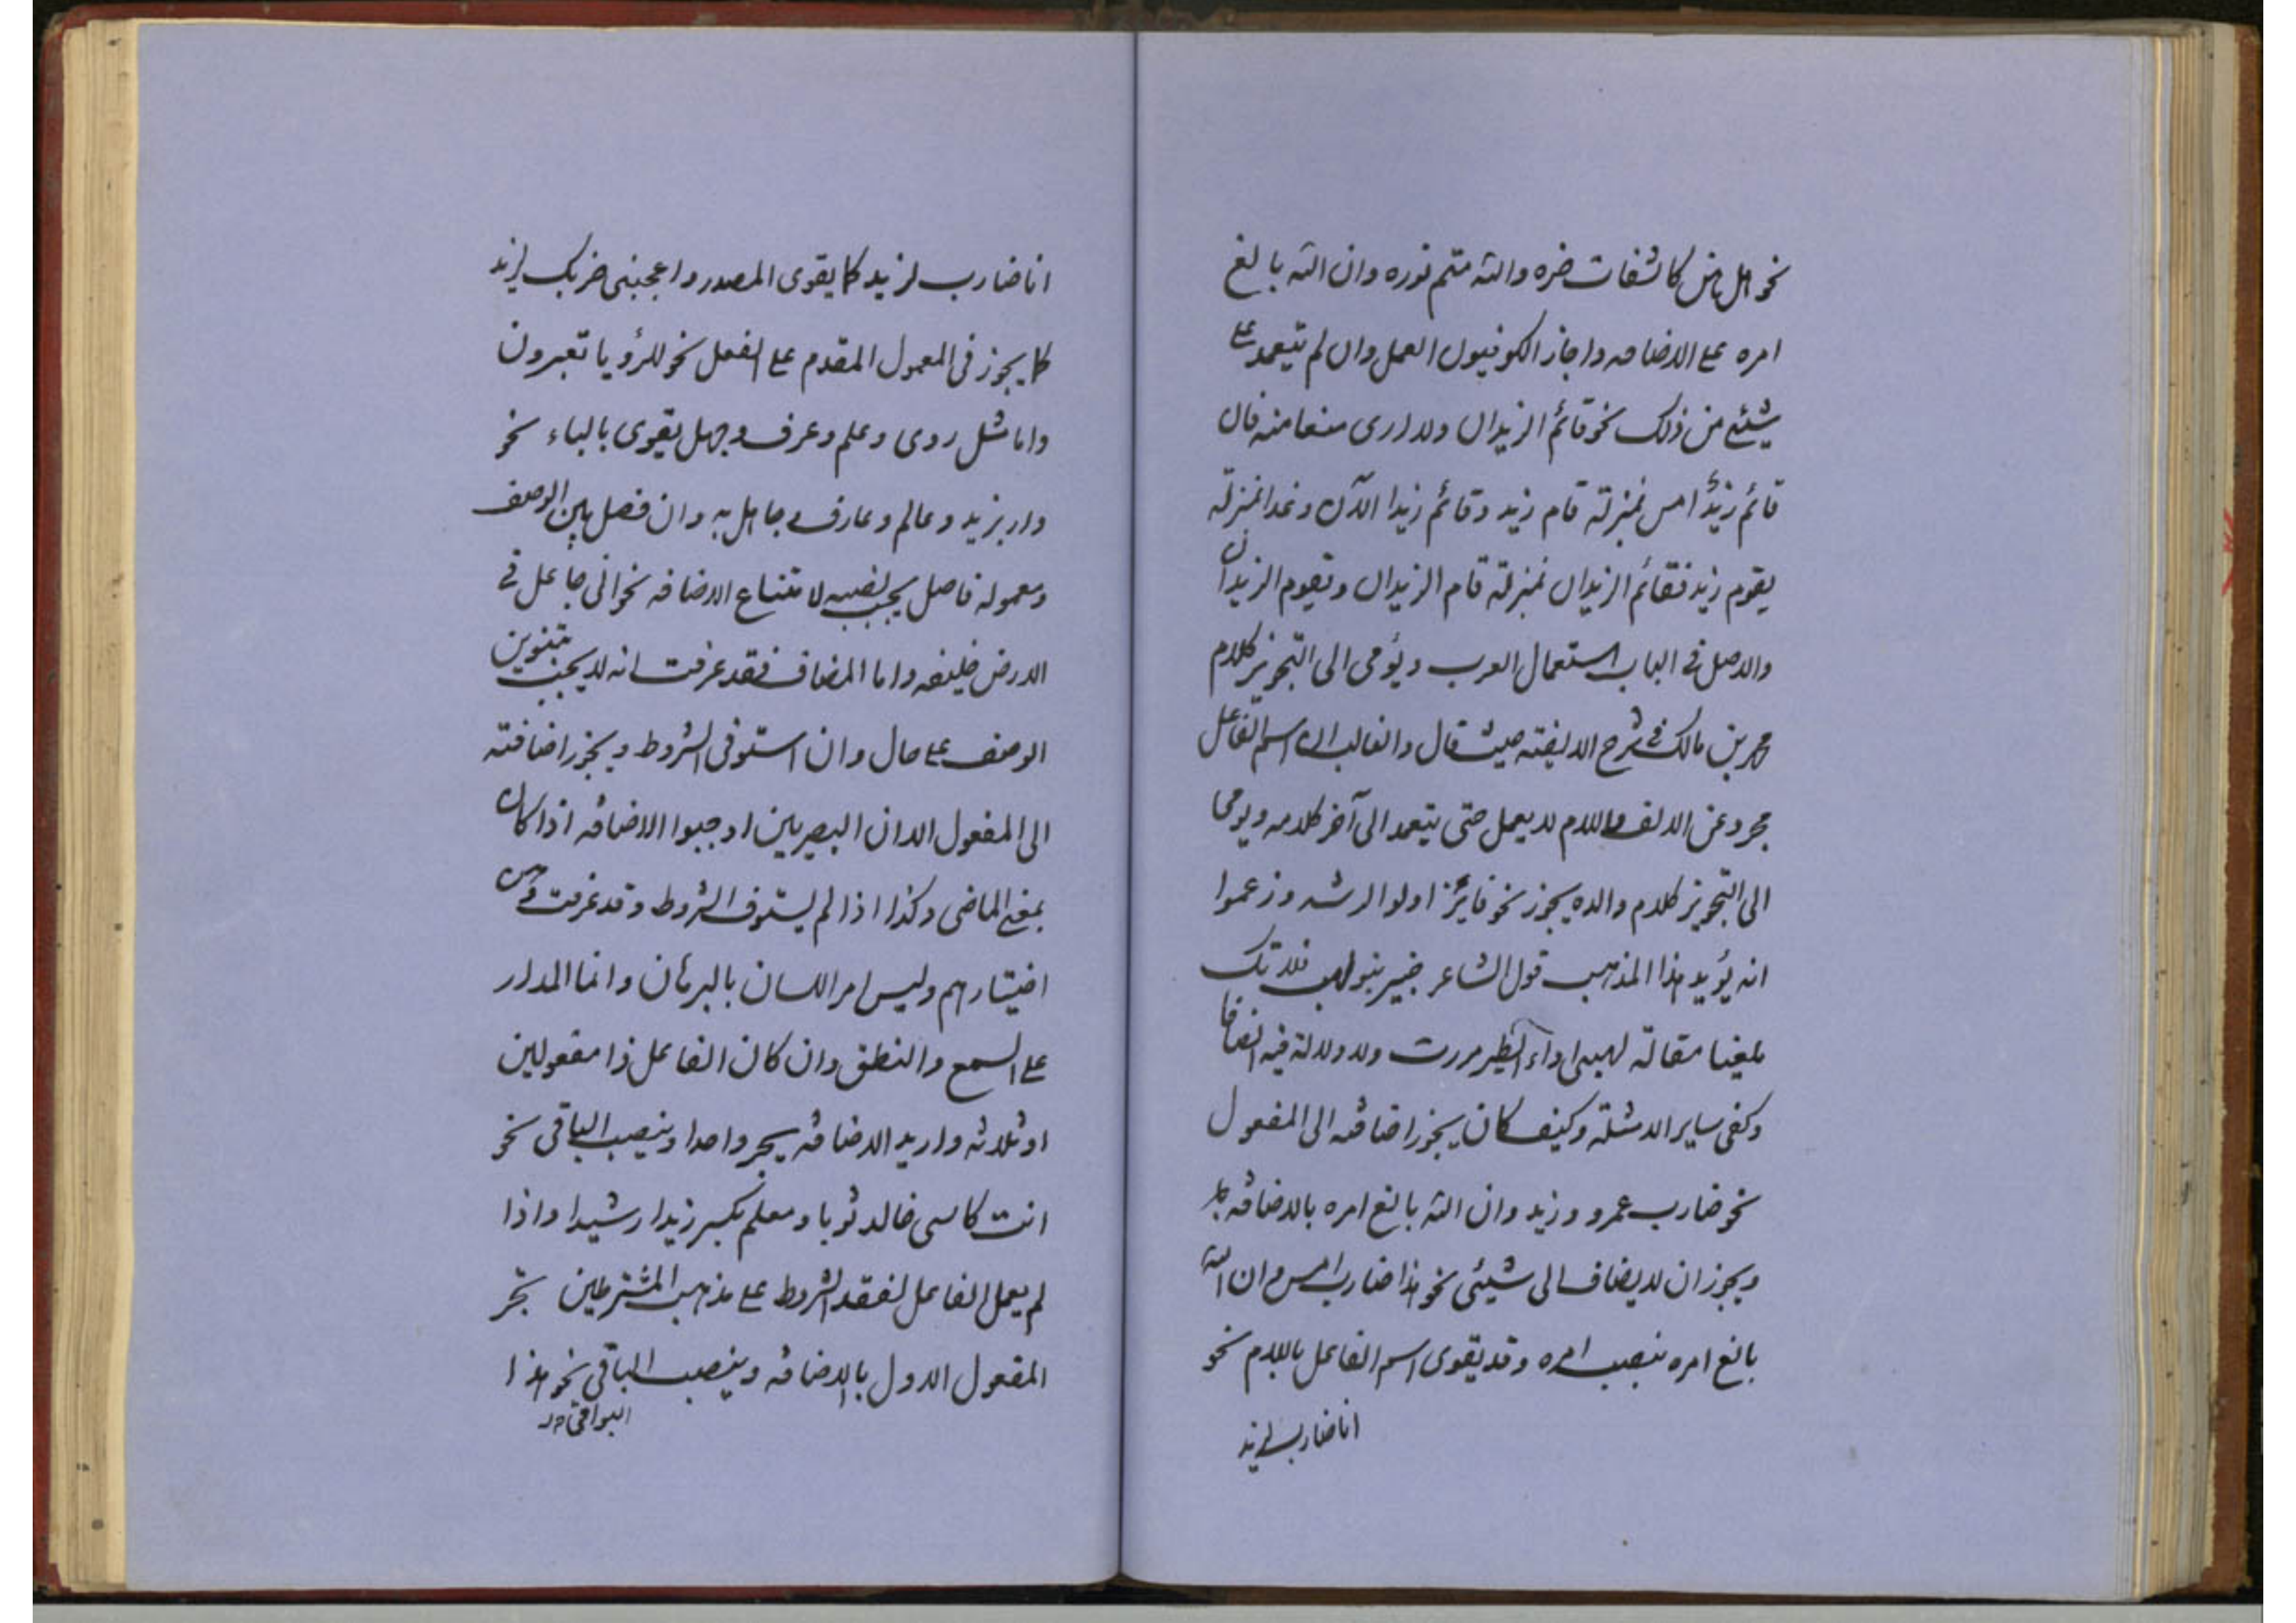 نحو هل هن كاشفات ضره والله متم نوره وان الله بالغ
امره على الاضافه واجاز الكوفيون العمل وان لم تيعمد على
شيئ من ذلك نحو قائم الزيدان ولا ارى منعا منه فان
قائم زيد امس بمنزلة قام زيد وقائم زيدا الآن وغدا بمنزلة
يقوم زيد فقائم الزيدان بمنزلة قام الزيدان ويقوم الزيدان
والاصل في الباب استعمال العرب ويؤمى الى التجويز كلام
محمد بن مالك في شرح الالفيته حيث قال والغالب ان اسم الفاعل
مجرد عن الالف واللام لا يعمل حتى يتعمد الى آخر كلامه ويومى
الى التجويز كلام والده يجوز نحو فايز اولوا الرشد وزعموا
انه يؤيد هذا المذهب قول الشاعر خبير بنو لهب فلا تك
ملغيا مقالة لهبى اذا الطير مررت ولا دلالة فيه ايضا
وكفى ساير الامثلة وكيف كان يجوز اضافته الى المفعول
نحو ضارب عمرو وزيد وان الله بالغ امره بالاضافه
ويجوز ان لا يضاف الى شيئى نحو هذا ضارب امس وان الله
بالغ امره بنصب امره وقد يقوى اسم الفاعل باللام نحو
انا ضارب لزيد
انا ضارب لزيد كما يقوى المصدر واعجبنى ضربك لزيد
كما يجوز فى المعمول المقدم على الفعل نحو للرؤيا تعبرون
واما مثل روى وعلم وعرف وجهل يقوى بالباء نحو
دار بزيد وعالم وعارف وجاهل به وان فصل بين الوصف
ومعموله فاصل يجب نصبه لامتناع الاضافه نحو انى جاعل في
الارض خليفه واما المضاف فقد عرفت انه لا يجب تنوين
الوصف على حال وان استوفى الشروط ويجوز اضافته
الى المفعول الا ان البصريين اوجبوا الاضافه اذا كان
بمعنى الماضى وكذا اذا لم يستوف الشروط وقد عرفت
اختيارهم وليس امر اللسان بالبرهان وانما المدار
على السمع والنطق وان كان الفاعل ذا مفعولين
او ثلاثه واريد الاضافه يجر واحدا وينصب الباقى نحو
انت كاسى خالد ثوبا ومعلم بكر زيدا رشيدا واذا
لم يعمل الفاعل لفقد الشروط على مذهب المشترطين تجر
المفعول الاول بالاضافه وينصب الباقى نحو هذا